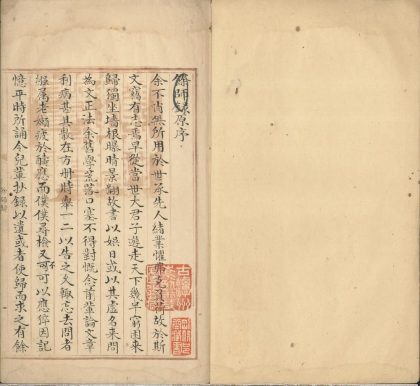 餘師錄原序
余不肖無所用於世承先人緒業懼弗克負荷故於斯
文竊有志焉早從當世大君子遊走天下幾早窮困來
歸獨坐墻根曝晴景翻故書以娛日或以其虛名來問
為文正法余舊學荒落口塞不得對慨念前輩論文章
利病甚具散在方冊時舉一二以告之又輒忘去問者
繼屬老嬾疲於醻應而僕僕尋檢又不可以應倅因記
憶平時所誦令兒輩抄錄以遺或者使歸而求之有餘